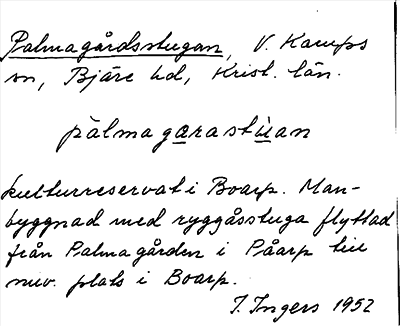 Palmagårdsstugan, V. Karups
sn, Bjäre hd, Krist. län.
pàlmagarastúan
Kulturreservat i Boarp. Man-
byggnad med ryggåsstuga flyttad
från Palmagården i Påarp till
nuv. plats i Boarp.
I. Ingers 1952